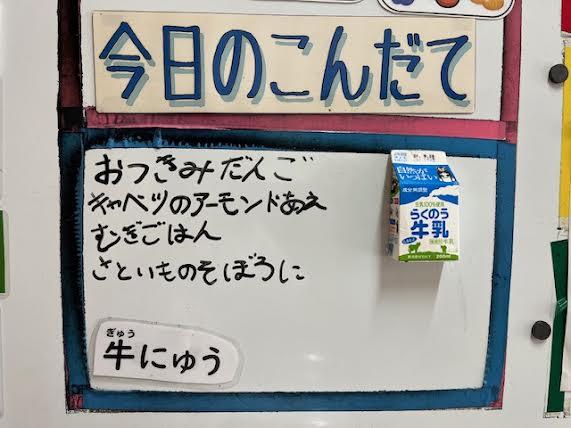 今日のこんだて
おつきみだんご
キャベツのアーモンドあえ
むぎごはん
さといものそぼろに
ぎゅう
牛にゅう
自然が
いっぱい
成分無調整
生乳100%使用
らくのう
牛乳
200ml